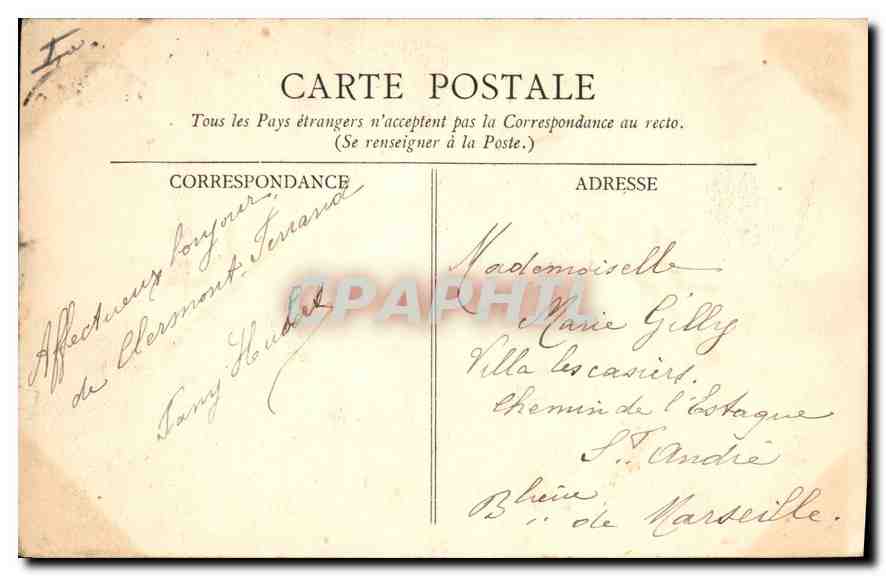 CARTE POSTALE
Tous les Pays étrangers n'acceptent pas la Correspondance au recto.
(Se renseigner à la Poste.)
CORRESPONDANCE
Affectueux bonjour
de Clermont-Ferrand
Fany Hubert
CPAPHIL
ADRESSE
Mademoiselle
Marie Gilly
Villa les casiers.
Chemin de l'Estaque
St. André
Blieue de Marseille.